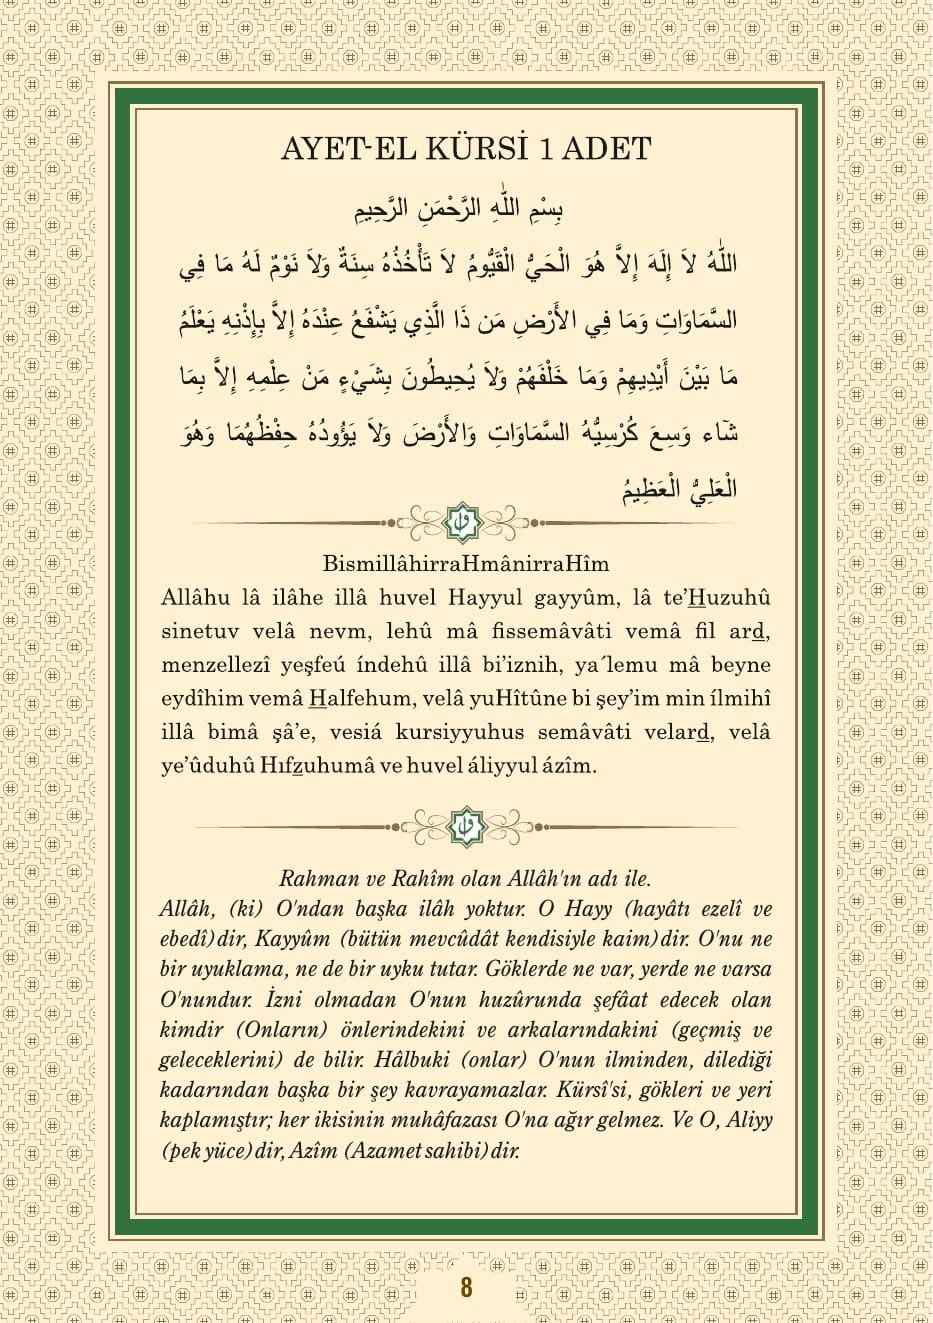 AYET-EL KÜRSİ 1 ADET
بِسْمِ اللّٰهِ الرَّحْمَنِ الرَّحِيمِ
اللّٰهُ لاَ إِلَهَ إِلاَّ هُوَ الْحَيُّ الْقَيُّومُ لاَ تَأْخُذُهُ سِنَةٌ وَلاَ نَوْمٌ لَهُ مَا فِي
السَّمَاوَاتِ وَمَا فِي الأَرْضِ مَن ذَا الَّذِي يَشْفَعُ عِنْدَهُ إِلاَّ بِإِذْنِهِ يَعْلَمُ
مَا بَيْنَ أَيْدِيهِمْ وَمَا خَلْفَهُمْ وَلاَ يُحِيطُونَ بِشَيْءٍ مَنْ عِلْمِهِ إِلاَّ بِمَا
شَاء وَسِعَ كُرْسِيُّهُ السَّمَاوَاتِ وَالأَرْضَ وَلاَ يَؤُودُهُ حِفْظُهُمَا وَهُوَ
الْعَلِيُّ الْعَظِيمُ
BismillâhirraHmânirraHîm
Allâhu lâ ilâhe illâ huvel Hayyul gayyûm, lâ te’Huzuhû
sinetuv velâ nevm, lehû mâ fissemâvâti vemâ fil ard,
menzellezî yeşfeú índehû illâ bi’iznih, ya´lemu mâ beyne
eydîhim vemâ Halfehum, velâ yuHîtûne bi şey’im min ílmihî
illâ bimâ şâ’e, vesiá kursiyyuhus semâvâti velard, velâ
ye’ûduhû Hıfzuhumâ ve huvel áliyyul ázîm.
Rahman ve Rahîm olan Allâh'ın adı ile.
Allâh, (ki) O'ndan başka ilâh yoktur. O Hayy (hayâtı ezelî ve
ebedî)dir, Kayyûm (bütün mevcûdât kendisiyle kaim)dir. O'nu ne
bir uyuklama, ne de bir uyku tutar. Göklerde ne var, yerde ne varsa
O'nundur. İzni olmadan O'nun huzûrunda şefâat edecek olan
kimdir (Onların) önlerindekini ve arkalarındakini (geçmiş ve
geleceklerini) de bilir. Hâlbuki (onlar) O'nun ilminden, dilediği
kadarından başka bir şey kavrayamazlar. Kürsî'si, gökleri ve yeri
kaplamıştır; her ikisinin muhâfazası O'na ağır gelmez. Ve O, Aliyy
(pek yüce)dir, Azîm (Azamet sahibi)dir.
8